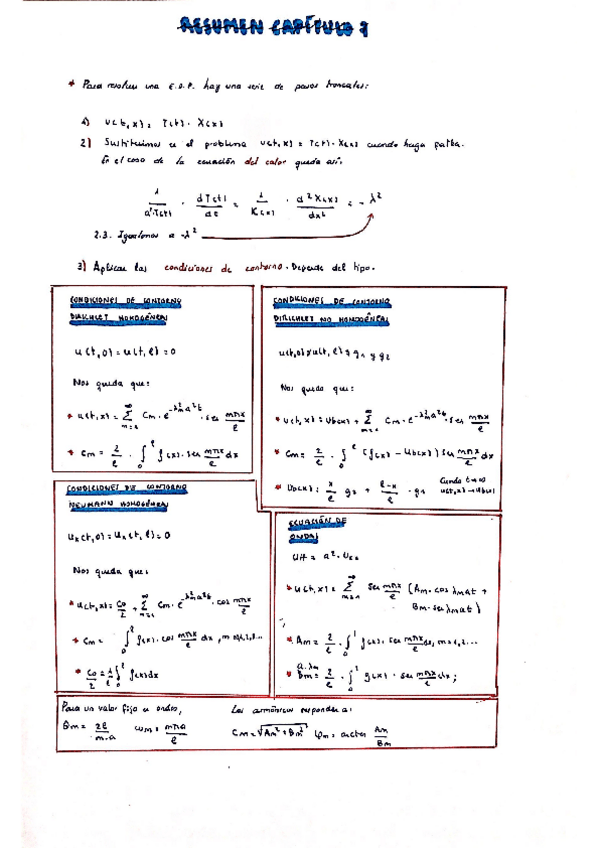 RESUMEN CAPÍTULO 7
* Para resolver una E.D.P. hay una serie de pasos troncales:
1) u(t,x) = T(t) · X(x)
2) Sustituimos en el problema u(t,x) = T(t) · X(x) cuando haga falta.
En el caso de la ecuación del calor queda así:
1/(a²·T(t)) · dT(t)/dt = 1/X(x) · d²X(x)/dx² = -λ²
2.3. Igualamos a -λ²
3) Aplicar las condiciones de contorno. Depende del tipo.
CONDICIONES DE CONTORNO
DIRICHLET HOMOGÉNEAS
u(t,0) = u(t,l) = 0
Nos queda que:
* u(t,x) = ∑ m=1 ∞ Cm · e^(-λ²m a² t) · sen mπx/l
* Cm = 2/l · ∫₀^l f(x) · sen mπx/l dx
CONDICIONES DE CONTORNO
DIRICHLET NO HOMOGÉNEAS
u(t,0) y u(t,l) g₁ y g₂
Nos queda que:
* u(t,x) = Ub(x) + ∑ m=1 ∞ Cm · e^(-λ²m a² t) · sen mπx/l
* Cm = 2/l · ∫₀^l (f(x) - Ub(x)) sen mπx/l dx
* Ub(x) = x/l g₂ + (l-x)/l · g₁
Cuando t→∞
u(t,x) → Ub(x)
CONDICIONES DE CONTORNO
NEUMANN HOMOGÉNEAS
ux(t,0) = ux(t,l) = 0
Nos queda que:
* u(t,x) = C0/2 + ∑ m=1 ∞ Cm · e^(-λ²m a² t) · cos mπx/l
* Cm = ∫₀^l f(x) · cos mπx/l dx, m
* C0/2 = 1/l ∫₀^l f(x) dx
ECUACIÓN DE
ONDAS
Utt = a² · Uxx
* u(t,x) = ∑ m=1 ∞ sen mπx/l (Am · cos λmat +
Bm · sen λmat)
* Am = 2/l · ∫₀^l f(x) · sen mπx/l dx, m=1,2...
* a·λm Bm = 2/l · ∫₀^l g(x) · sen mπx/l dx;
Para un valor fijo m ondas,
θm = 2l/m·a
ωm = mπa/l
Los armónicos responden a:
Cm = √(Am² + Bm²)
φm = arctan Am/Bm